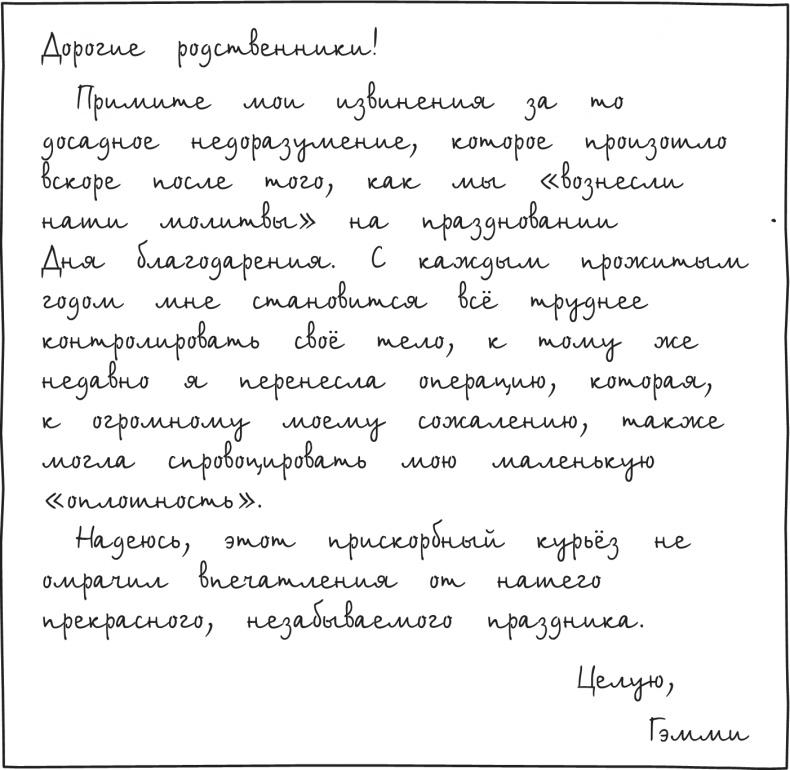 Дорогие родственники!
Примите мои извинения за то
досадное недоразумение, которое произошло
вскоре после того, как мы «вознесли
наши молитвы» на праздновании
Дня благодарения. С каждым прожитым
годом мне становится всё труднее
контролировать своё тело, к тому же
недавно я перенесла операцию, которая,
к огромному моему сожалению, также
могла спровоцировать мою маленькую
«оплошность».
Надеюсь, этот прискорбный курьёз не
омрачил впечатления от нашего
прекрасного, незабываемого праздника.
Целую,
Гэмми